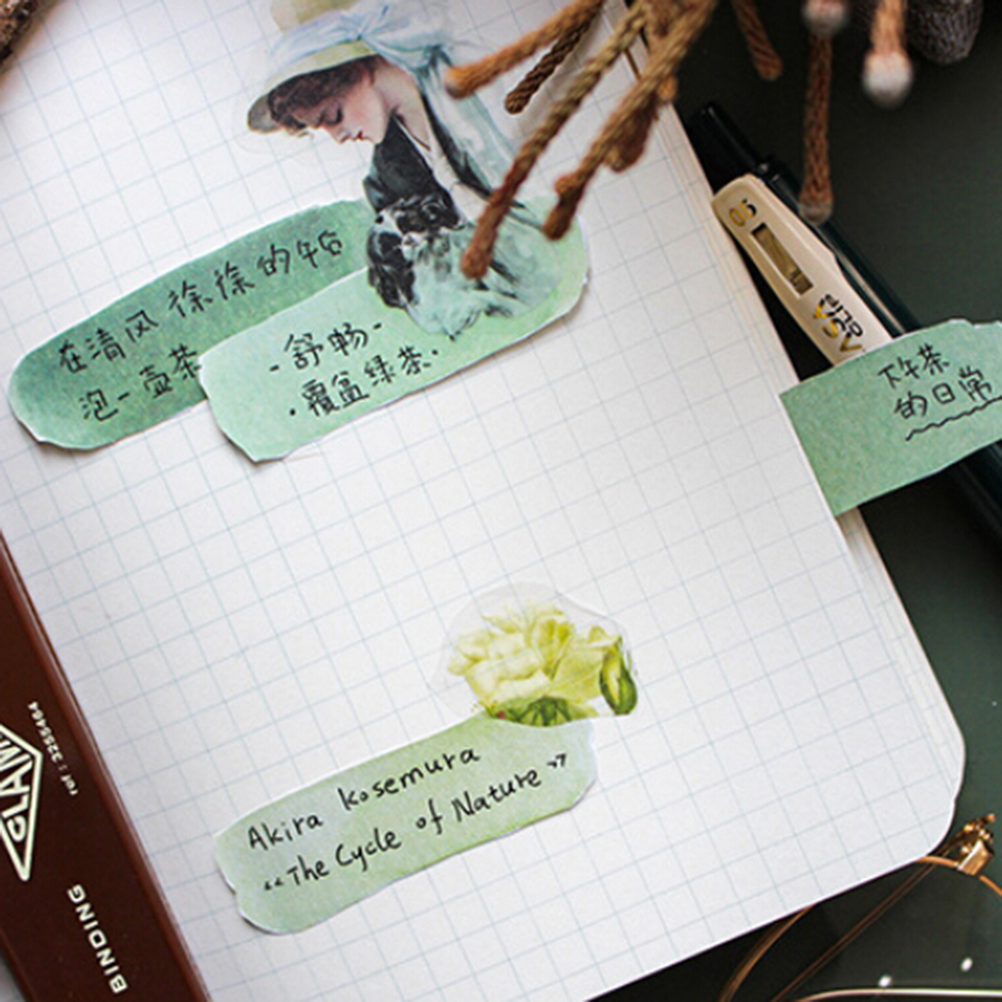 在清风徐徐的午后
泡一壶茶
-舒畅-
·覆盆绿茶·
下午茶
的日常
0.5
Akira Kosemura
“The Cycle of Nature”
ref:3255464
BINDING